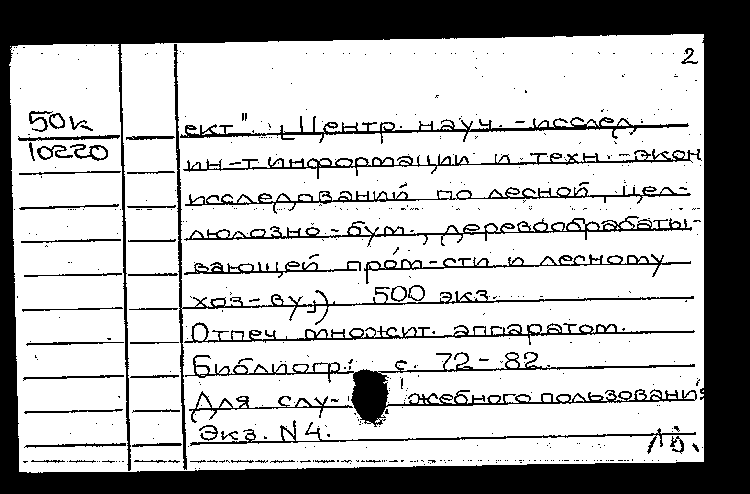 2
50к
10220
ект". (Центр. науч.-исслед.
ин-т информации и техн.-экон
исследований по лесной, цел-
люлозно-бум., деревообрабаты-
вающей пром-сти и лесному
хоз-ву;). 500 экз.
Отпеч. множит. аппаратом.
Библиогр: с. 72-82.
Для слу- жебного пользования
Экз. N4.